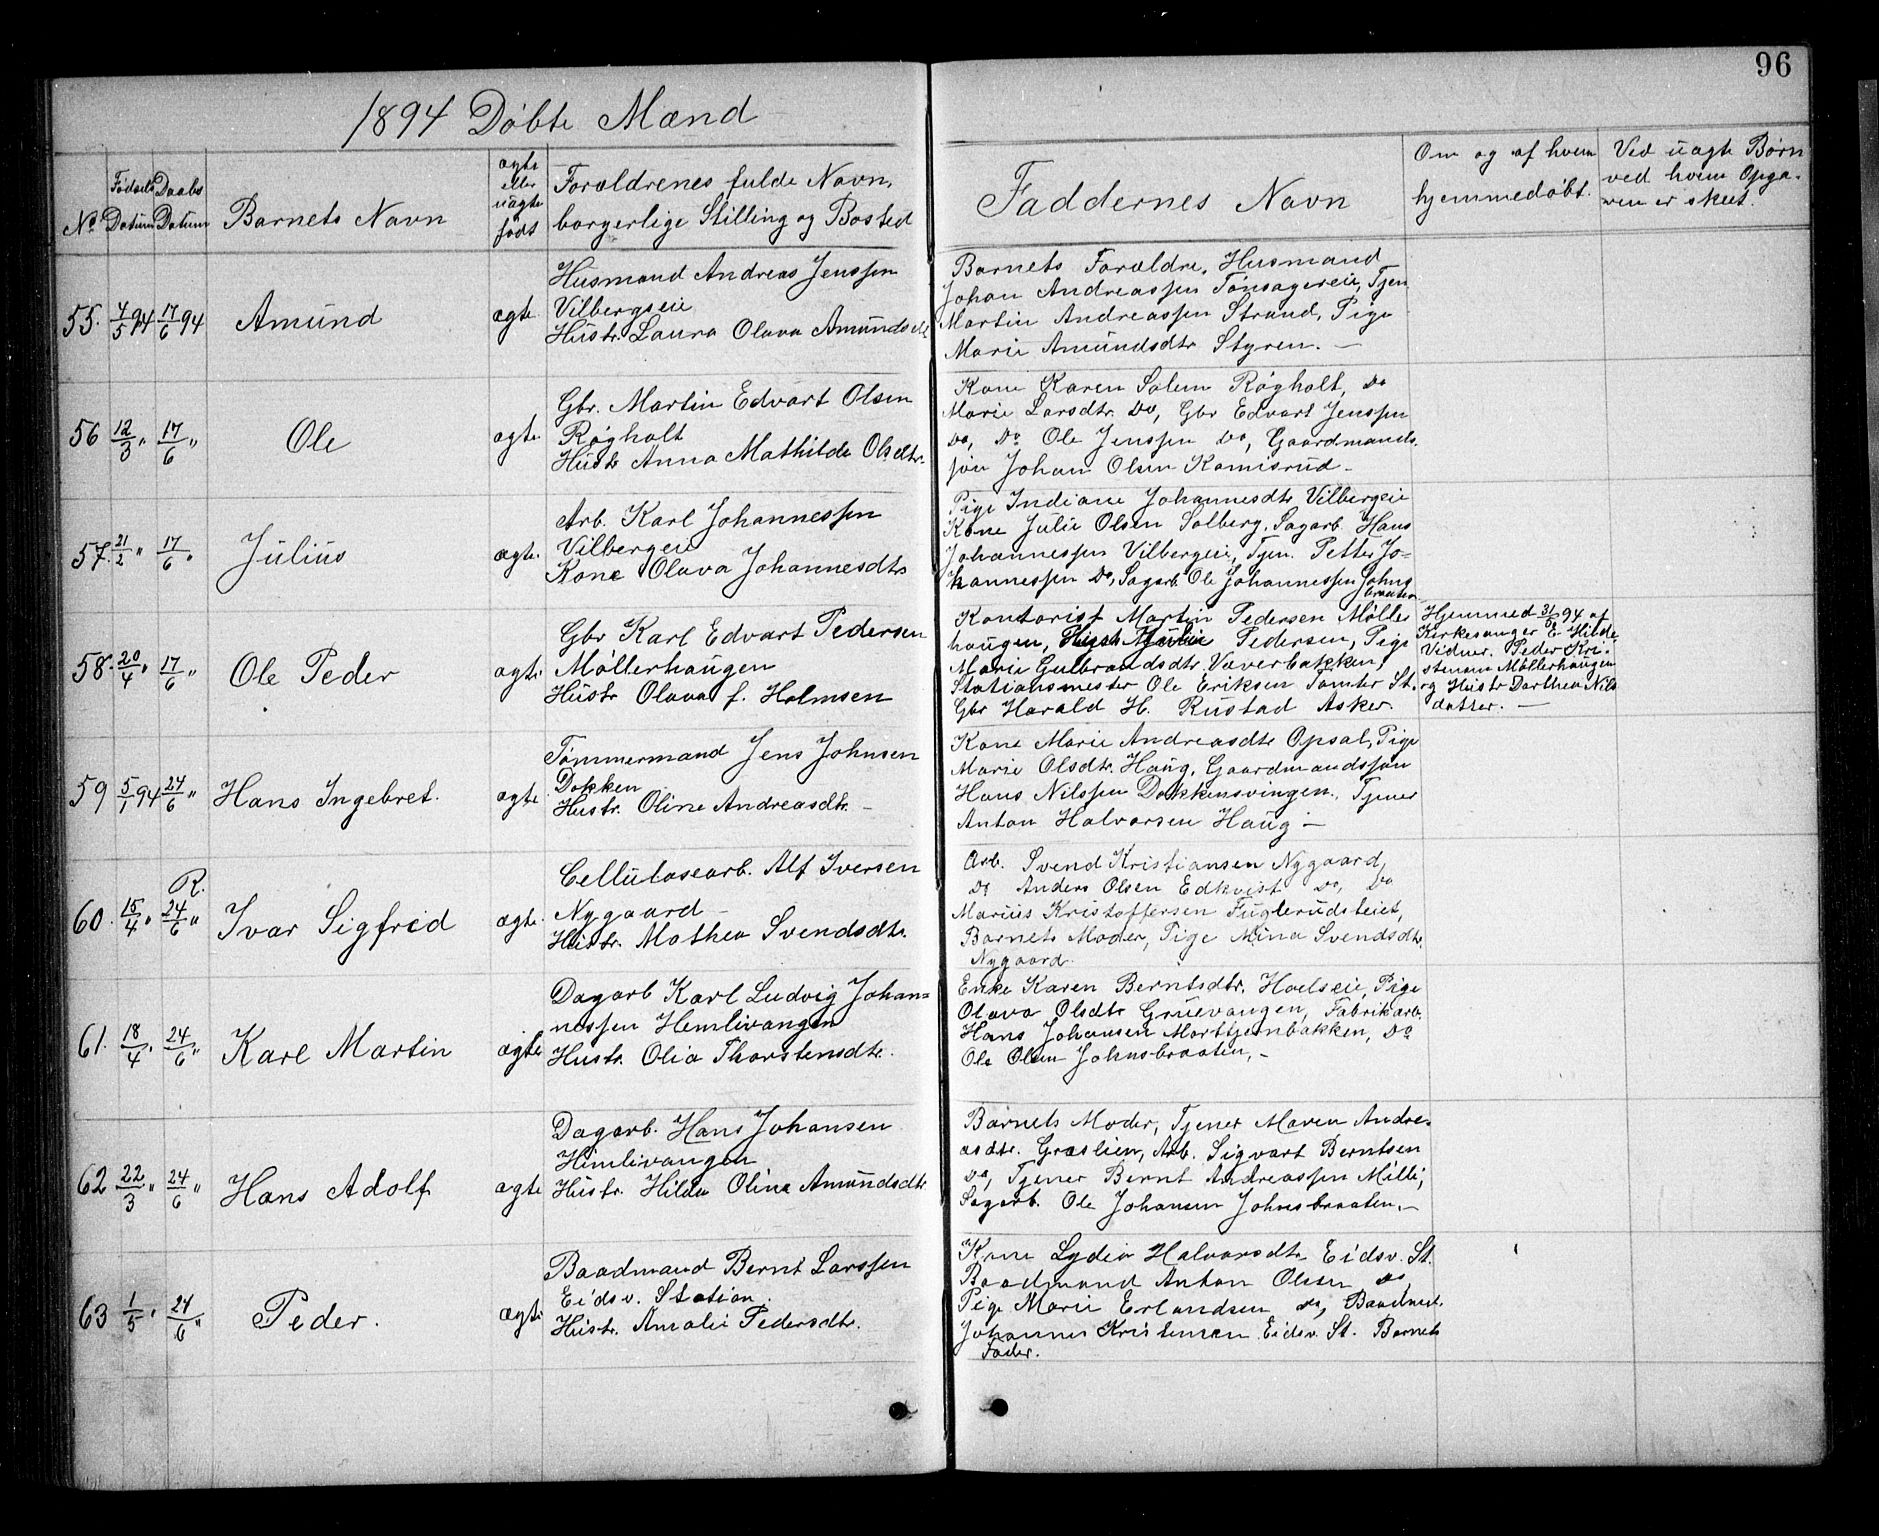 96
1894 Døbte Mænd
No
Fødsels Datum
Daabs Datum
Barnets Navn
ægte eller uægte født
Forældrenes fulde Navn,
borgerlige Stilling og Bosted
Faddernes Navn
Om og af hvem
hjemmedøbt.
Ved uægte Børn
ved hvem Opga-
ven er skeet.
55. 4/5 94 17/6 94 Amund ægte
Husmand Andreas Jenssen
Vilbergseie
Hustr. Laura Olava Amundsdtr
Barnets Forældre, Husmand
Johan Andreassen Tønsagereie, Tjen
Martin Andreassen Strand, Pige
Marie Amundsdtr Styren. —
56 12/3 " 17/6 " Ole ægte
Gbr. Martin Edvart Olsen
Røgholt
Hustr Anna Mathilde Olsdtr.
Kone Karen Solem Røgholt, Do
Marie Larsdtr. Do, Gbr Edvart Jenssen
Do, Do Ole Jenssen Do, Gaardmands-
søn Johan Olsen Komisrud —
57. 21/2 " 17/6 " Julius ægte.
Arb. Karl Johannessen
Vilbergeie
Kone Olava Johannesdtr
Pige Indiane Johannesdtr Vilbergeie
Kone Julie Olsen Solberg, Sagarb. Hans
Johannessen Vilbergeie, Tjen. Petter Jo-
hannessen Do, Sagarb. Ole Johannessen Johns
braaten
58. 20/4 " 17/6 " Ole Peder ægte
Gbr Karl Edvart Pedersen
Møllerhaugen
Hustr Olava f. Holmsen
Kontorist Martin Pedersen Møller
haugen, Pedersen, Pige
Marie Gulbrandsdtr Væverbakken,
Stationsmester Ole Eriksen Tomter St.
Gbr Harald H. Rustad Asker.
Hjemmed 31/5 94 af
Kirkesanger E. Hilde.
Vidner. Peder Kri-
stensen Møllerhaugen
og Hustr Dorthea Nils
datter. —
59 5/1 94 24/6 " Hans Ingebret. ægte
Tømmermand Jens Johnsen
Dokken
Hustr. Oline Andreasdtr. —
Kone Marie Andreasdtr Opsal, Pige
Marie Olsdtr. Haug, Gaardmandssøn
Hans Nilssen Dokkensvingen, Tjener
Anton Halvorsen Haug —
R.
60. 15/4 " 24/6 " Ivar Sigfred ægte.
Cellulosearb. Alf Iversen
Nygaard —
Hustr. Mathea Svendsdtr.
Arb. Svend Kristiansen Nygaard,
Do Anders Olsen Edkvist Do, Do
Marius Kristoffersen Fuglerudsteiet,
Barnets Moder, Pige Mina Svendsdtr.
Nygaard.
61. 18/4 " 24/6 " Karl Martin ægte
Dagarb Karl Ludvig Johan-
nessen Hemlivangen
Hustr. Olia Thorstensdtr.
Enke Karen Berntsdtr. Hoelseie, Pige
Olava Olsdtr Gruevangen, Fabrikarb.
Hans Johansen Morttjernbakken, Do
Ole Olsen Johnsbraaten, —
62 22/3 " 24/6 " Hans Adolf. ægte
Dagarb. Hans Johansen
Himlivangen
Hustr. Hilda Oline Amundsdtr
Barnets Moder, Tjener Maren Andre-
asdtr. Græslien, Arb. Sigvart Berntsen
Do, Tjener Bernt Andreassen Milli,
Sagarb. Ole Johansen Johnsbraaten. —
63 1/5 " 24/6 " Peder. ægte
Baadmand Bernt Larssen
Eidsv. Station.
Hustr. Amalie Pedersdtr.
Kone Lydia Halvorsdtr Eidsv. St.
Baadmand Anton Olsen Do,
Pige Marie Erlandsen Do, Baadmd.
Johannes Kristensen Eidsv. St. Barnets
Fader.